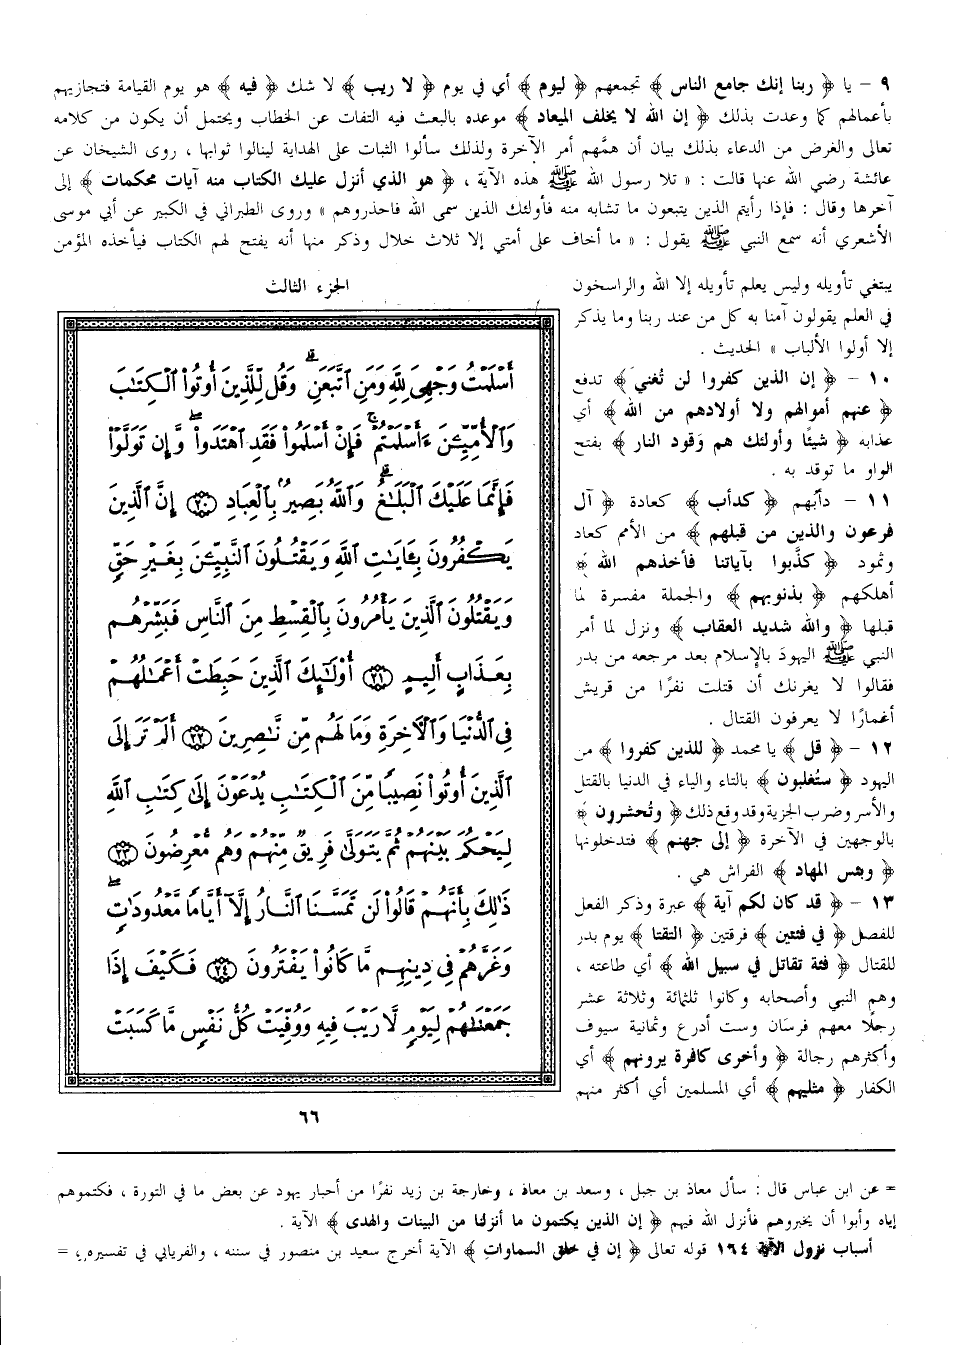 ٩ - يا ﴿ ربنا إنك جامع الناس ﴾ تجمعهم ﴿ ليوم ﴾ أي في يوم ﴿ لا ريب ﴾ لا شك ﴿ فيه ﴾ هو يوم القيامة فتجازيهم
بأعمالهم كما وعدت بذلك ﴿ إن الله لا يخلف الميعاد ﴾ موعده بالبعث فيه التفات عن الخطاب ويحتمل أن يكون من كلامه
تعالى والغرض من الدعاء بذلك بيان أن همَّهم أمر الآخرة ولذلك سألوا الثبات على الهداية لينالوا ثوابها ، روى الشيخان عن
عائشة رضي الله عنها قالت : « تلا رسول الله ﷺ هذه الآية ، ﴿ هو الذي أنزل عليك الكتاب منه آيات محكمات ﴾ إلى
آخرها وقال : فإذا رأيتم الذين يتبعون ما تشابه منه فأولئك الذين سمى الله فاحذروهم » وروى الطبراني في الكبير عن أبي موسى
الأشعري أنه سمع النبي ﷺ يقول : « ما أخاف على أمتي إلا ثلاث خلال وذكر منها أنه يفتح لهم الكتاب فيأخذه المؤمن
يبتغي تأويله وليس يعلم تأويله إلا الله والراسخون
في العلم يقولون آمنا به كل من عند ربنا وما يذكر
إلا أولوا الألباب » الحديث .
١٠ - ﴿ إن الذين كفروا لن تُغني ﴾ تدفع
﴿ عنهم أموالهم ولا أولادهم من الله ﴾ أي
عذابه ﴿ شيئًا وأولئك هم وَقود النار ﴾ بفتح
الواو ما توقد به .
١١ - دأبُهم ﴿ كدأب ﴾ كعادة ﴿ آل
فرعون والذين من قبلهم ﴾ من الأمم كعاد
وثمود ﴿ كذَّبوا بآياتنا فأخذهم الله ﴾
أهلكهم ﴿ بذنوبهم ﴾ والجملة مفسرة لما
قبلها ﴿ والله شديد العقاب ﴾ ونزل لما أمر
النبي ﷺ اليهودَ بالإسلام بعد مرجعه من بدر
فقالوا لا يغرنك أن قتلت نفرًا من قريش
أغمارًا لا يعرفون القتال .
١٢ - ﴿ قل ﴾ يا محمد ﴿ للذين كفروا ﴾ من
اليهود ﴿ ستُغلبون ﴾ بالتاء والياء في الدنيا بالقتل
والأسر وضرب الجزية وقد وقع ذلك ﴿ وتُحشرون ﴾
بالوجهين في الآخرة ﴿ إلى جهنم ﴾ فتدخلونها
﴿ وبئس المهاد ﴾ الفراش هي .
١٣ - ﴿ قد كان لكم آية ﴾ عبرة وذكر الفعل
للفصل ﴿ في فئتين ﴾ فرقتين ﴿ التقتا ﴾ يوم بدر
للقتال ﴿ فئة تقاتل في سبيل الله ﴾ أي طاعته ،
وهم النبي وأصحابه وكانوا ثلثمائة وثلاثة عشر
رجلًا معهم فرسَان وست أدرع وثمانية سيوف
وأكثرهم رجالة ﴿ وأخرى كافرة يرونهم ﴾ أي
الكفار ﴿ مثليهم ﴾ أي المسلمين أي أكثر منهم
الجزء الثالث
أَسْلَمْتُ وَجْهِىَ لِلَّهِ وَمَنِ ٱتَّبَعَنِ ۗ وَقُل لِّلَّذِينَ أُوتُوا۟ ٱلْكِتَٰبَ
وَٱلْأُمِّيِّـۧنَ ءَأَسْلَمْتُمْ ۚ فَإِنْ أَسْلَمُوا۟ فَقَدِ ٱهْتَدَوا۟ ۖ وَّإِن تَوَلَّوْا۟
فَإِنَّمَا عَلَيْكَ ٱلْبَلَٰغُ ۗ وَٱللَّهُ بَصِيرٌۢ بِٱلْعِبَادِ ﴿٢٠﴾ إِنَّ ٱلَّذِينَ
يَكْفُرُونَ بِـَٔايَٰتِ ٱللَّهِ وَيَقْتُلُونَ ٱلنَّبِيِّـۧنَ بِغَيْرِ حَقٍّ
وَيَقْتُلُونَ ٱلَّذِينَ يَأْمُرُونَ بِٱلْقِسْطِ مِنَ ٱلنَّاسِ فَبَشِّرْهُم
بِعَذَابٍ أَلِيمٍ ﴿٢١﴾ أُو۟لَٰٓئِكَ ٱلَّذِينَ حَبِطَتْ أَعْمَٰلُهُمْ
فِى ٱلدُّنْيَا وَٱلْـَٔاخِرَةِ وَمَا لَهُم مِّن نَّٰصِرِينَ ﴿٢٢﴾ أَلَمْ تَرَ إِلَى
ٱلَّذِينَ أُوتُوا۟ نَصِيبًا مِّنَ ٱلْكِتَٰبِ يُدْعَوْنَ إِلَىٰ كِتَٰبِ ٱللَّهِ
لِيَحْكُمَ بَيْنَهُمْ ثُمَّ يَتَوَلَّىٰ فَرِيقٌ مِّنْهُمْ وَهُم مُّعْرِضُونَ ﴿٢٣﴾
ذَٰلِكَ بِأَنَّهُمْ قَالُوا۟ لَن تَمَسَّنَا ٱلنَّارُ إِلَّآ أَيَّامًا مَّعْدُودَٰتٍ ۖ
وَغَرَّهُمْ فِى دِينِهِم مَّا كَانُوا۟ يَفْتَرُونَ ﴿٢٤﴾ فَكَيْفَ إِذَا
جَمَعْنَٰهُمْ لِيَوْمٍ لَّا رَيْبَ فِيهِ وَوُفِّيَتْ كُلُّ نَفْسٍ مَّا كَسَبَتْ
٦٦
= عن ابن عباس قال : سأل معاذ بن جبل ، وسعد بن معاذ ، وخارجة بن زيد نفرًا من أحبار يهود عن بعض ما في التورة ، فكتموهم
إياه وأبوا أن يخبروهم فأنزل الله فيهم ﴿ إن الذين يكتمون ما أنزلنا من البينات والهدى ﴾ الآية .
أسباب نزول الآية ١٦٤ قوله تعالى ﴿ إن في خلق السماوات ﴾ الآية أخرج سعيد بن منصور في سننه ، والفريابي في تفسيره ، =